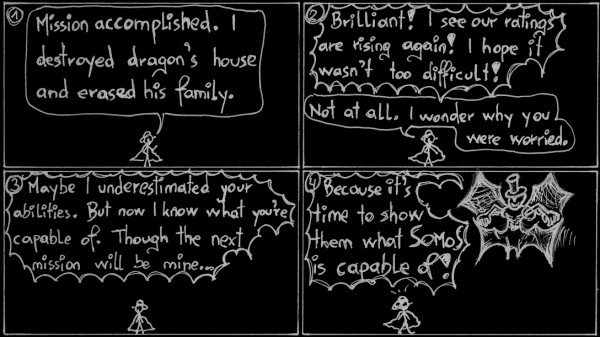 1
Mission accomplished. I
destroyed dragon's house
and erased his family.
2
Brilliant! I see our ratings
are rising again! I hope it
wasn't too difficult!
Not at all. I wonder why you
were worried.
3
Maybe I underestimated your
abilities. But now I know what you're
capable of. Though the next
mission will be mine...
4
Because it's
time to show
them what SOMOS
is capable of!